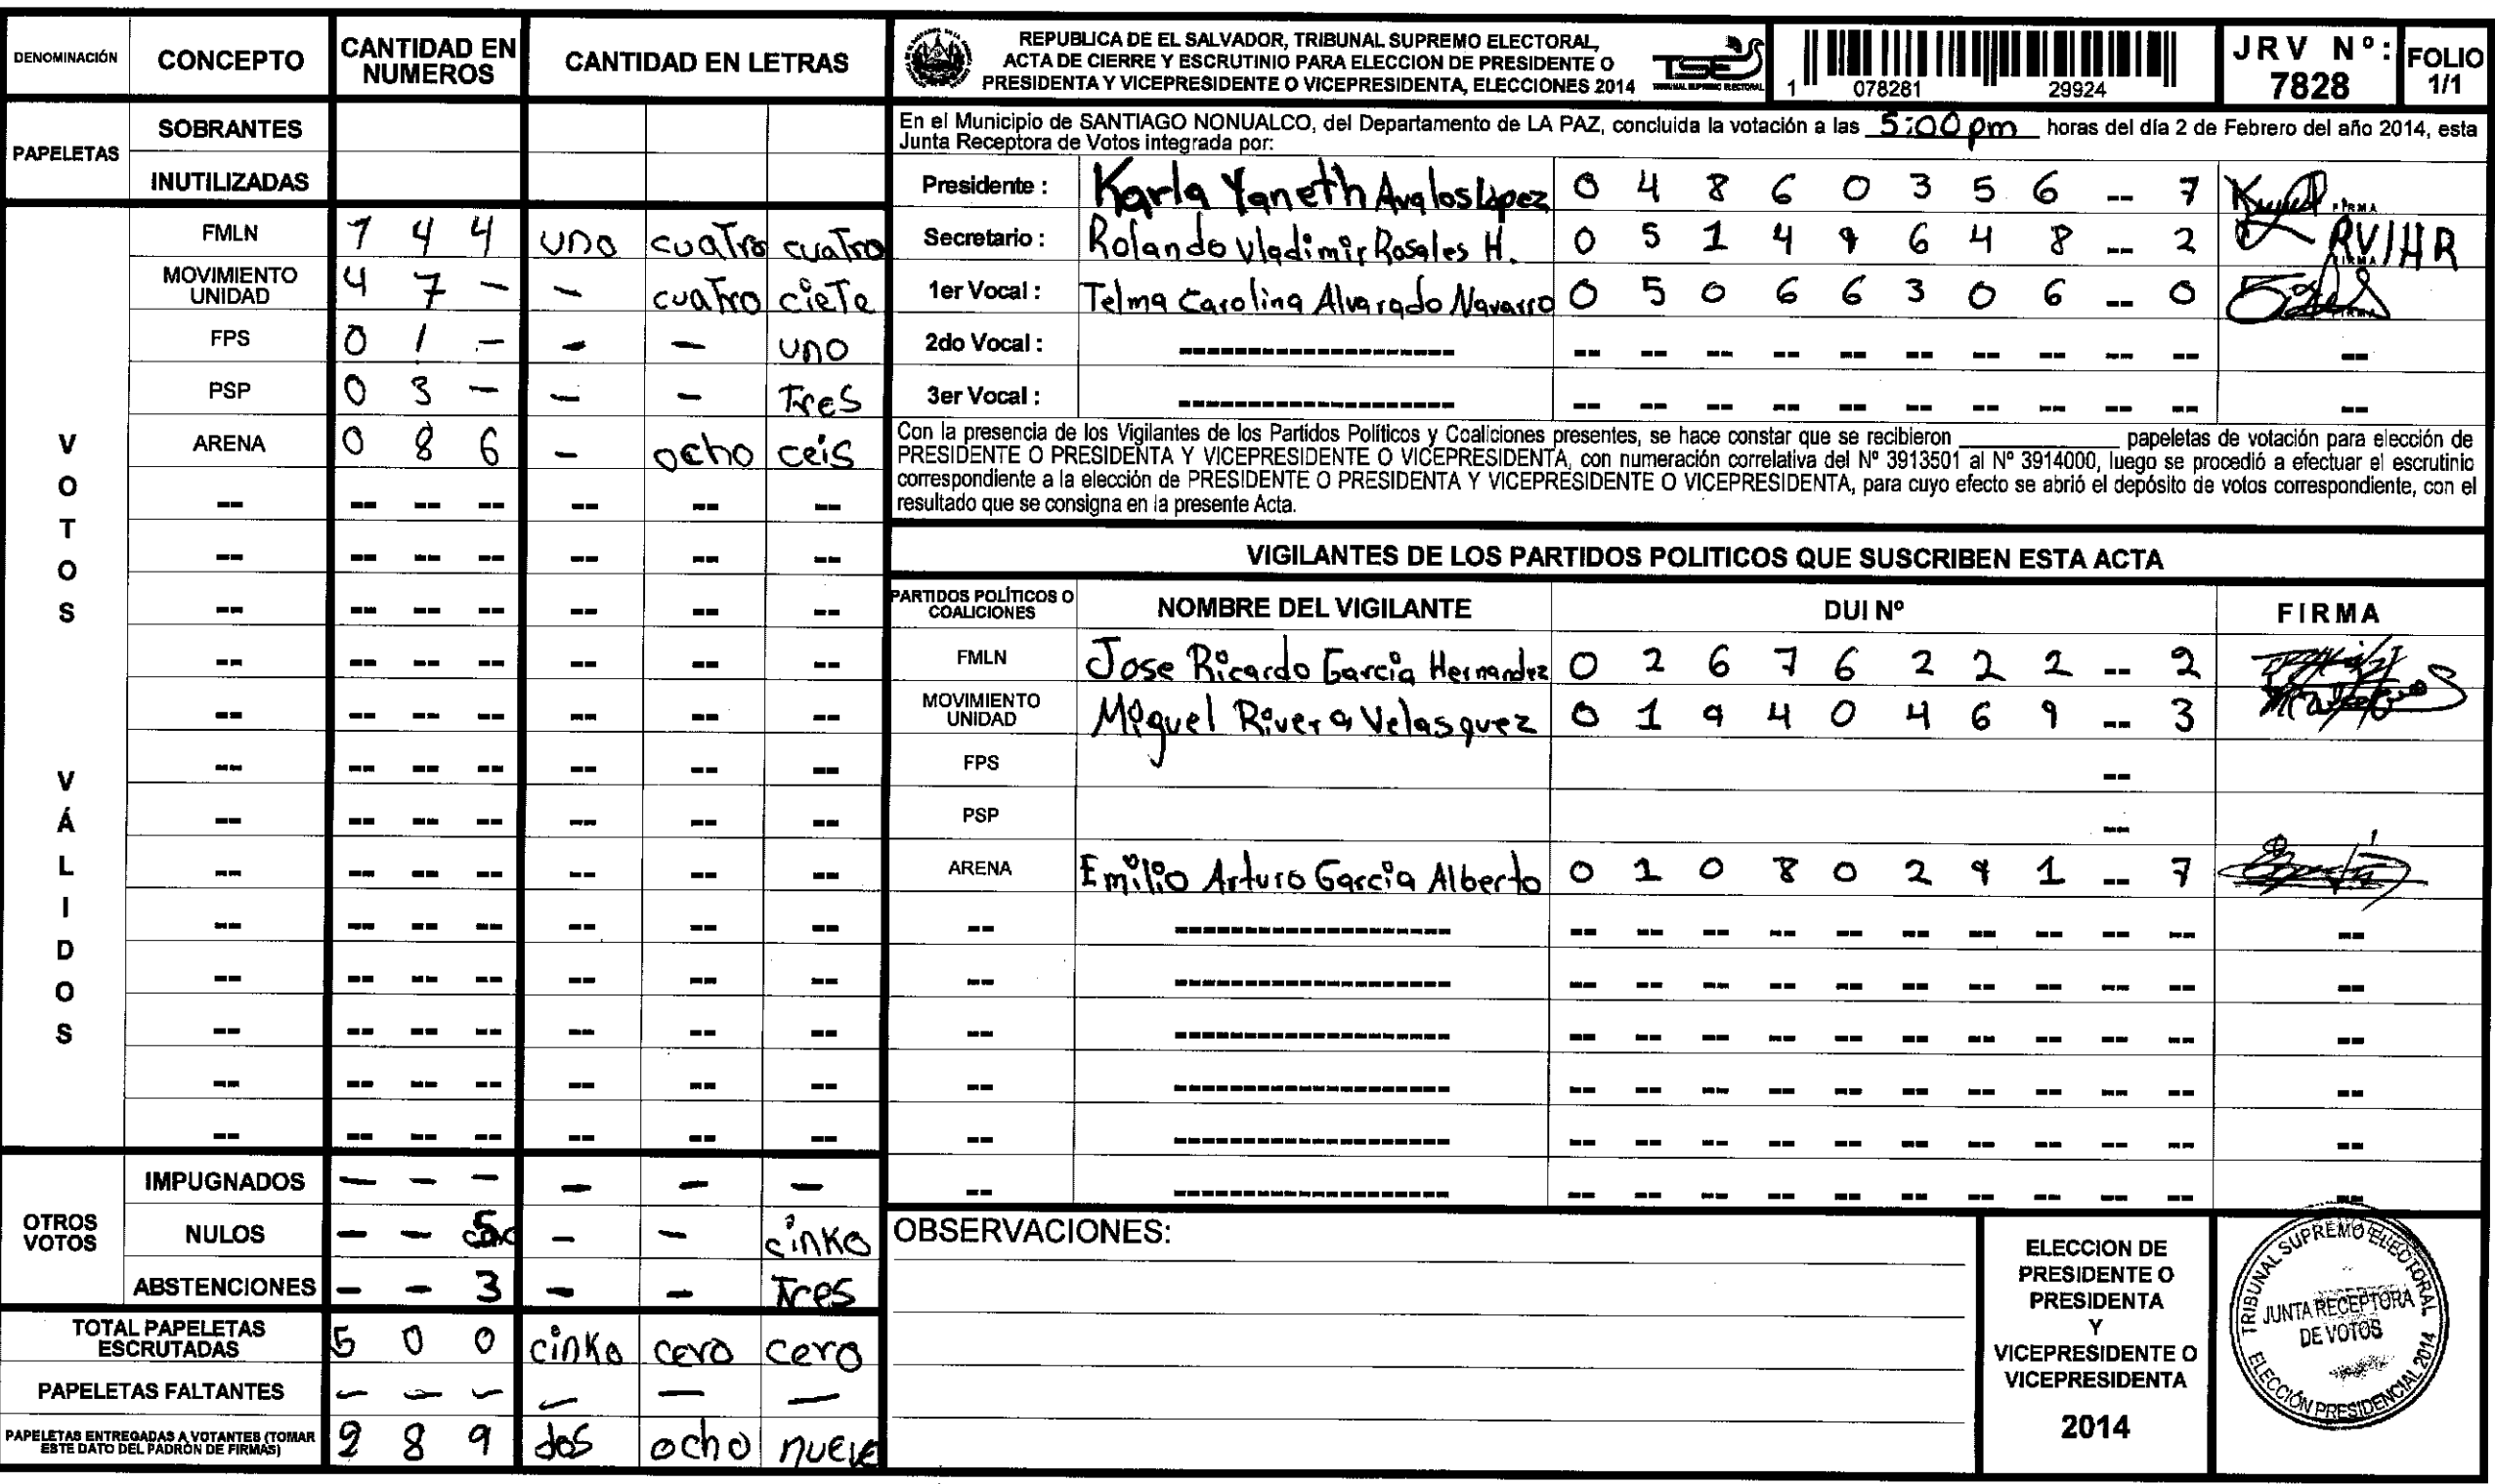 DENOMINACIÓN CONCEPTO CANTIDAD EN NUMEROS CANTIDAD EN LETRAS
PAPELETAS
SOBRANTES
INUTILIZADAS
VOTOS VÁLIDOS
FMLN 1 4 4 uno cuatro cuatro
MOVIMIENTO UNIDAD 4 7 - - cuatro ciete
FPS 0 1 - - - uno
PSP 0 3 - - - Tres
ARENA 0 8 6 - ocho ceis
-- -- -- -- -- -- --
-- -- -- -- -- -- --
-- -- -- -- -- -- --
-- -- -- -- -- -- --
-- -- -- -- -- -- --
-- -- -- -- -- -- --
-- -- -- -- -- -- --
-- -- -- -- -- -- --
-- -- -- -- -- -- --
-- -- -- -- -- -- --
-- -- -- -- -- -- --
-- -- -- -- -- -- --
-- -- -- -- -- -- --
OTROS VOTOS
IMPUGNADOS - - - - - -
NULOS - - 5 - - cinko
ABSTENCIONES - - 3 - - Tres
TOTAL PAPELETAS ESCRUTADAS 5 0 0 cinko cero cero
PAPELETAS FALTANTES - - - - - -
PAPELETAS ENTREGADAS A VOTANTES (TOMAR ESTE DATO DEL PADRÓN DE FIRMAS) 2 8 9 dos ocho nueve
REPUBLICA DE EL SALVADOR, TRIBUNAL SUPREMO ELECTORAL,
ACTA DE CIERRE Y ESCRUTINIO PARA ELECCION DE PRESIDENTE O
PRESIDENTA Y VICEPRESIDENTE O VICEPRESIDENTA, ELECCIONES 2014
TSE
TRIBUNAL SUPREMO ELECTORAL
1 078281 29924
JRV Nº: 7828
FOLIO 1/1
En el Municipio de SANTIAGO NONUALCO, del Departamento de LA PAZ, concluida la votación a las 5:00 pm horas del día 2 de Febrero del año 2014, esta
Junta Receptora de Votos integrada por:
Presidente : Karla Yaneth Avalos Lopez 0 4 8 6 0 3 5 6 -- 7 FIRMA
Secretario : Rolando Vladimir Rosales H. 0 5 1 4 9 6 4 8 -- 2 RVHR
1er Vocal : Telma Carolina Alvarado Navarro 0 5 0 6 6 3 0 6 -- 0
2do Vocal : ------------------- -- -- -- -- -- -- -- -- -- -- --
3er Vocal : ------------------- -- -- -- -- -- -- -- -- -- -- --
Con la presencia de los Vigilantes de los Partidos Políticos y Coaliciones presentes, se hace constar que se recibieron ________ papeletas de votación para elección de
PRESIDENTE O PRESIDENTA Y VICEPRESIDENTE O VICEPRESIDENTA, con numeración correlativa del Nº 3913501 al Nº 3914000, luego se procedió a efectuar el escrutinio
correspondiente a la elección de PRESIDENTE O PRESIDENTA Y VICEPRESIDENTE O VICEPRESIDENTA, para cuyo efecto se abrió el depósito de votos correspondiente, con el
resultado que se consigna en la presente Acta.
VIGILANTES DE LOS PARTIDOS POLITICOS QUE SUSCRIBEN ESTA ACTA
PARTIDOS POLÍTICOS O COALICIONES NOMBRE DEL VIGILANTE DUI Nº FIRMA
FMLN Jose Ricardo Garcia Hernandez 0 2 6 7 6 2 2 2 -- 2
MOVIMIENTO UNIDAD Miguel Rivera Velasquez 0 1 9 4 0 4 6 9 -- 3
FPS --
PSP --
ARENA Emilio Arturo Garcia Alberto 0 1 0 8 0 2 9 1 -- 7
-- ------------------- -- -- -- -- -- -- -- -- -- -- --
-- ------------------- -- -- -- -- -- -- -- -- -- -- --
-- ------------------- -- -- -- -- -- -- -- -- -- -- --
-- ------------------- -- -- -- -- -- -- -- -- -- -- --
-- ------------------- -- -- -- -- -- -- -- -- -- -- --
-- ------------------- -- -- -- -- -- -- -- -- -- -- --
OBSERVACIONES:
ELECCION DE
PRESIDENTE O
PRESIDENTA
Y
VICEPRESIDENTE O
VICEPRESIDENTA
2014
TRIBUNAL SUPREMO ELECTORAL
JUNTA RECEPTORA
DE VOTOS
ELECCIÓN PRESIDENCIAL 2014